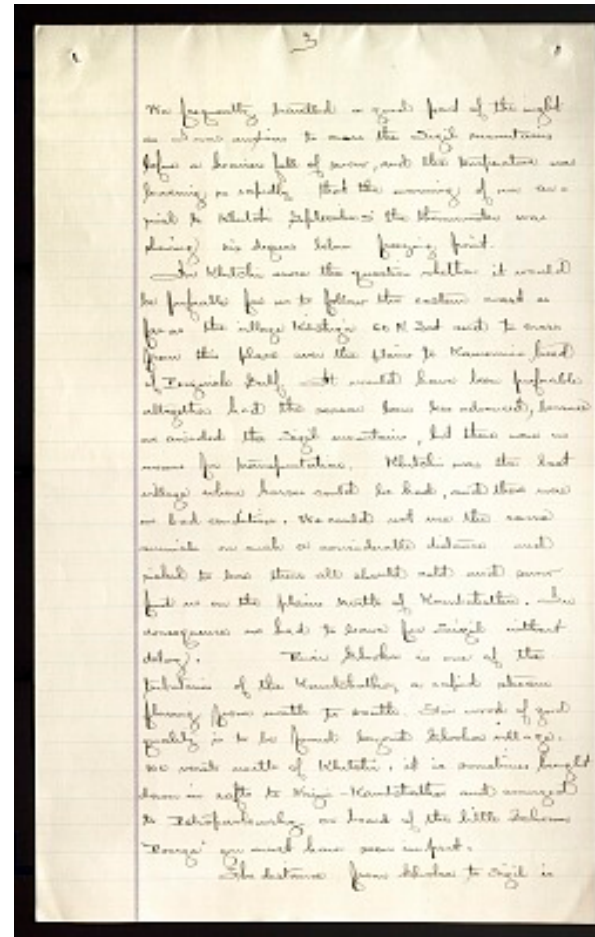 3
We frequently travelled a good part of the night
as I was anxious to cross the Sigil mountains
before a heavier fall of snow, and the temperature was
lowering so rapidly that the morning of our ar-
rival to Khutchi September 5 the thermometer was
showing six degrees below freezing point.
In Khutchi arose the question whether it would
be preferable for us to follow the eastern coast as
far as the village 60 M and to cross
from this place over the plains to Kamennoi, head
of Penjinsk Gulf. It would have been preferable
altogether had the season been less advanced, because
we avoided the Sigil mountains, but there were no
means for transportation. Khutchi was the last
village where horses could be had, and these were
in bad condition. We could not use the same
animals on such a considerable distance and
risked to lose them all should cold and snow
find us on the plains north of Kamchatka. In
consequence we had to leave for Sigil without
delay. River is one of the
tributaries of the Kamchatka, a rapid stream
flowing from north to south. Fir wood of good
quality is to be found beyond village.
north of Khutchi, it is sometimes brought
down in rafts to Nijni-Kamchatka and
to Petropavlovsky on board of the little Schooner
you must have seen in port.
The distance from to Sigil is